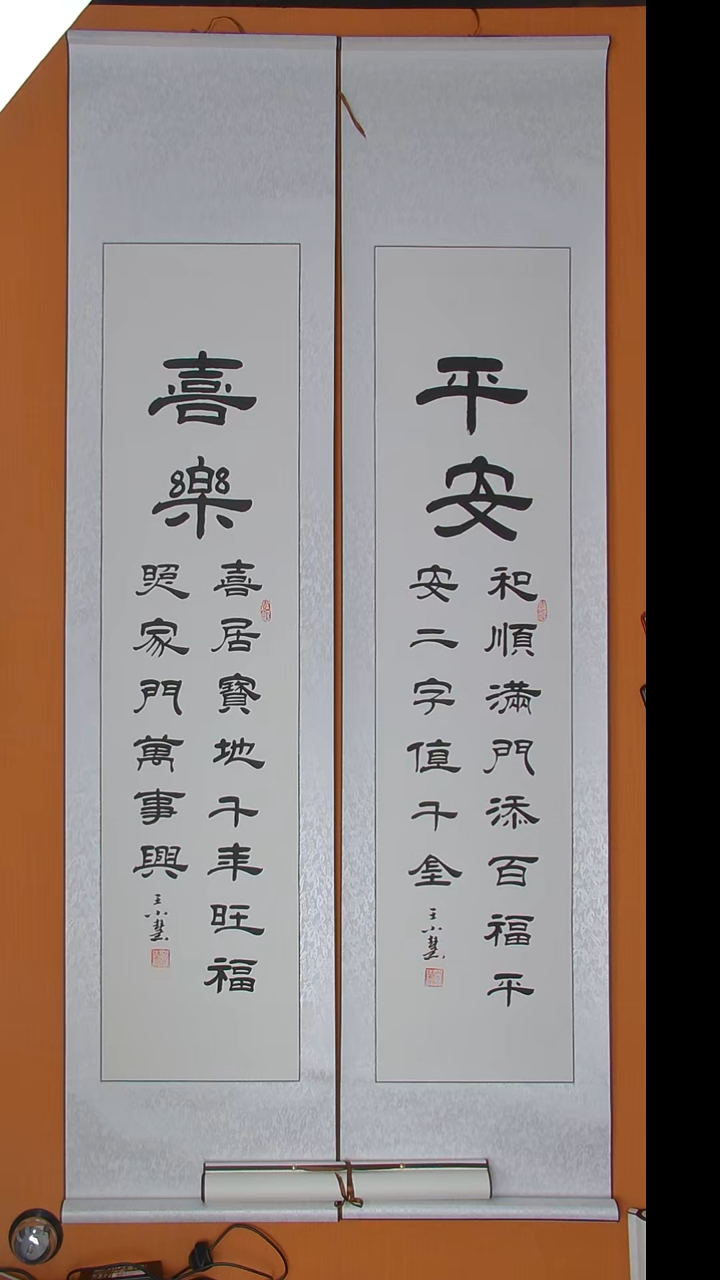 平安
和順滿門添百福平
安二字值千金
王小慧
喜樂
喜居寶地千年旺福
照家門萬事興
王小慧